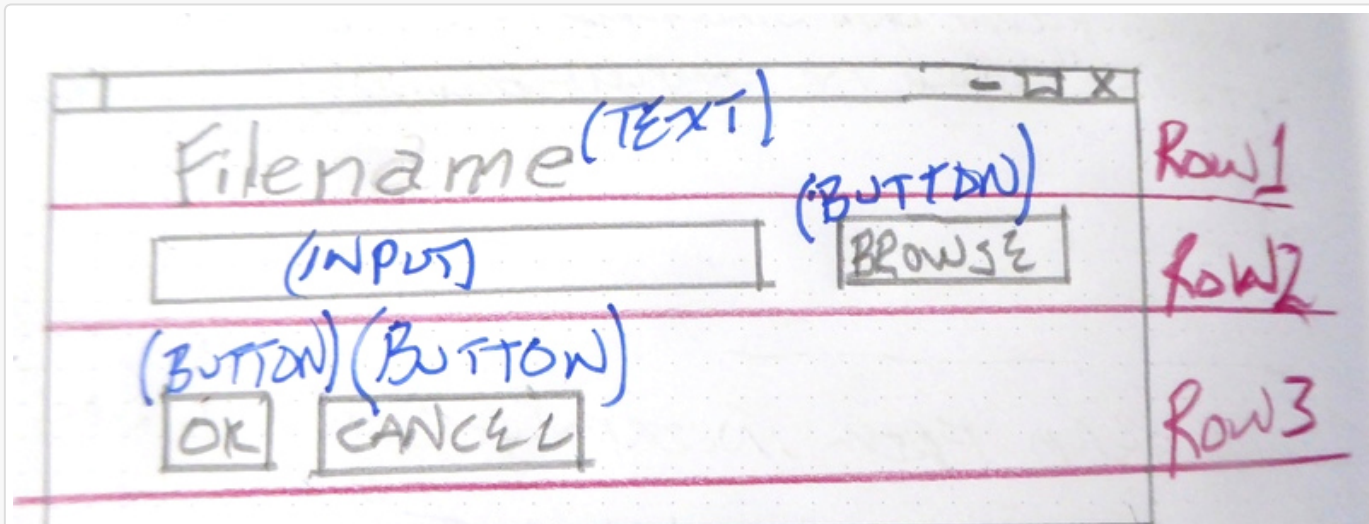 Filename (TEXT) Row 1
(BUTTON)
(INPUT) BROWSE Row 2
(BUTTON) (BUTTON)
OK CANCEL Row 3